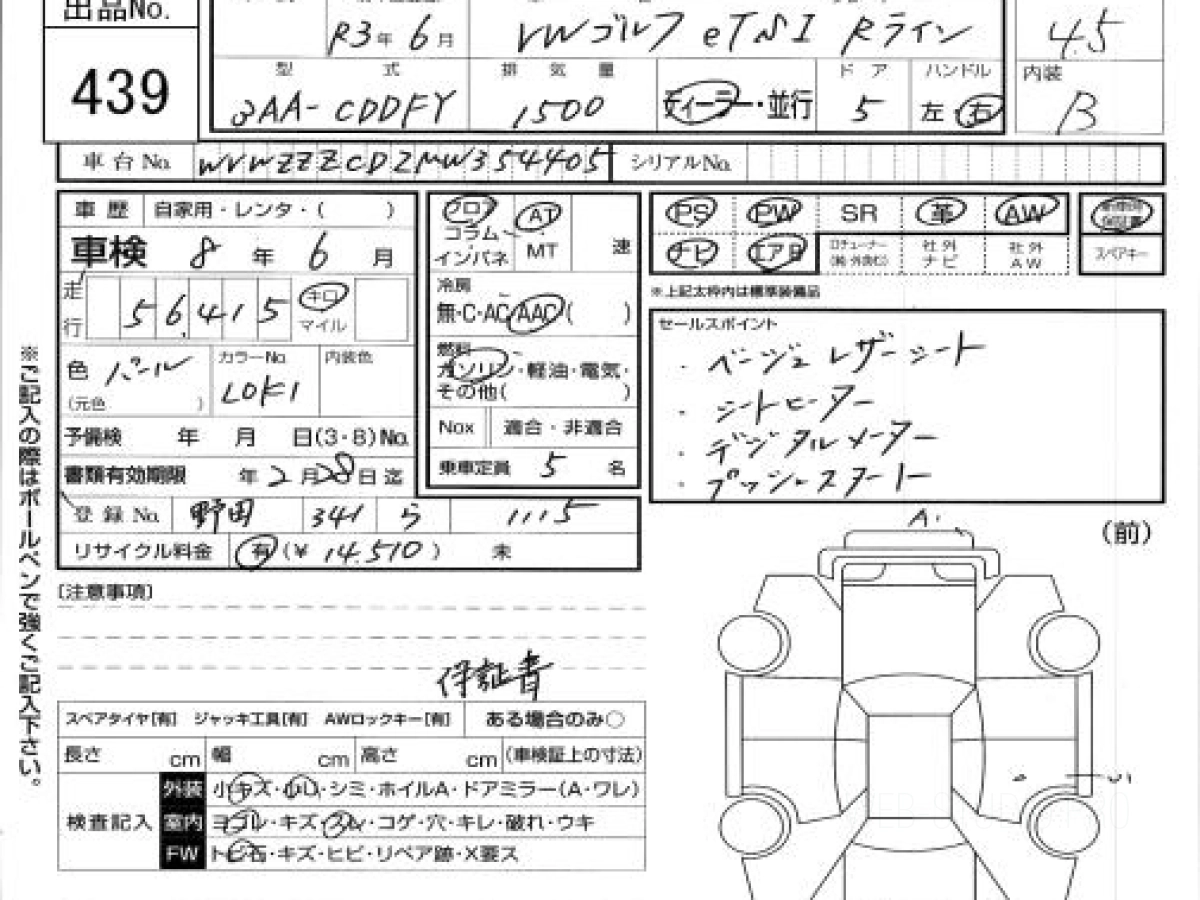 出品No.
439
R3年 6月 VWゴルフ eTSI Rライン 4.5
型式 排気量 ドア ハンドル 内装
3AA-CDDFY 1500 ディーラー・並行 5 左 右 B
車台No. WVWZZZCDZMW354405 シリアルNo.
車歴 自家用・レンタ・( )
車検 8年 6月
走行 56,415 キロ マイル
色 パール カラーNo. LOK1 内装色
(元色 )
予備検 年 月 日(3・8)No.
書類有効期限 年2月28日迄
登録No. 野田 341 ら 1115
リサイクル料金 有(¥ 14,510 ) 未
フロア コラム インパネ AT MT 速
冷房
無・C・AC・AAC( )
燃料
ガソリン・軽油・電気・
その他( )
Nox 適合・非適合
乗車定員 5 名
PS PW SR 革 AW
ナビ エアB 社外ナビ 社外AW スペアキー
※上記太枠内は標準装備品
セールスポイント
・ベージュレザーシート
・シートヒーター
・デジタルメーター
・プッシュスタート
A1
(前)
[注意事項]
保証書
スペアタイヤ[有] ジャッキ工具[有] AWロックキー[有] ある場合のみ○
長さ cm 幅 cm 高さ cm (車検証上の寸法)
検査記入
外装 小キズ・小凹・シミ・ホイルA・ドアミラー(A・ワレ)
室内 ヨゴレ・キズ・スレ・コゲ・穴・キレ・破れ・ウキ
FW トビ石・キズ・ヒビ・リペア跡・X要ス
※ご記入の際はボールペンで強くご記入下さい。